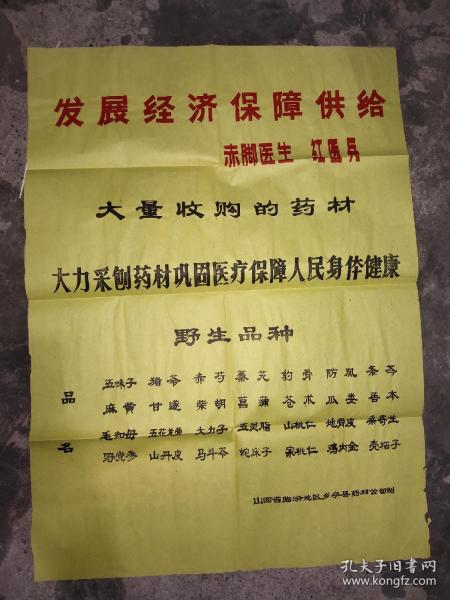 发展经济保障供给
赤脚医生 红医兵
大量收购的药材
大力采刨药材巩固医疗保障人民身体健康
野生品种
品名
五味子 猪苓 赤芍 秦艽 豹骨 防风 条芩
麻黄 甘遂 柴胡 菖蒲 苍术 瓜娄 吉本
毛知母 五花龙骨 大力子 五灵脂 山桃仁 地骨皮 桑寄生
野党参 山丹皮 马斗苓 蛇床子 家桃仁 鸡内金 壳梧子
山西省临汾地区乡宁县药材公司制
孔夫子旧书网
www.kongfz.com